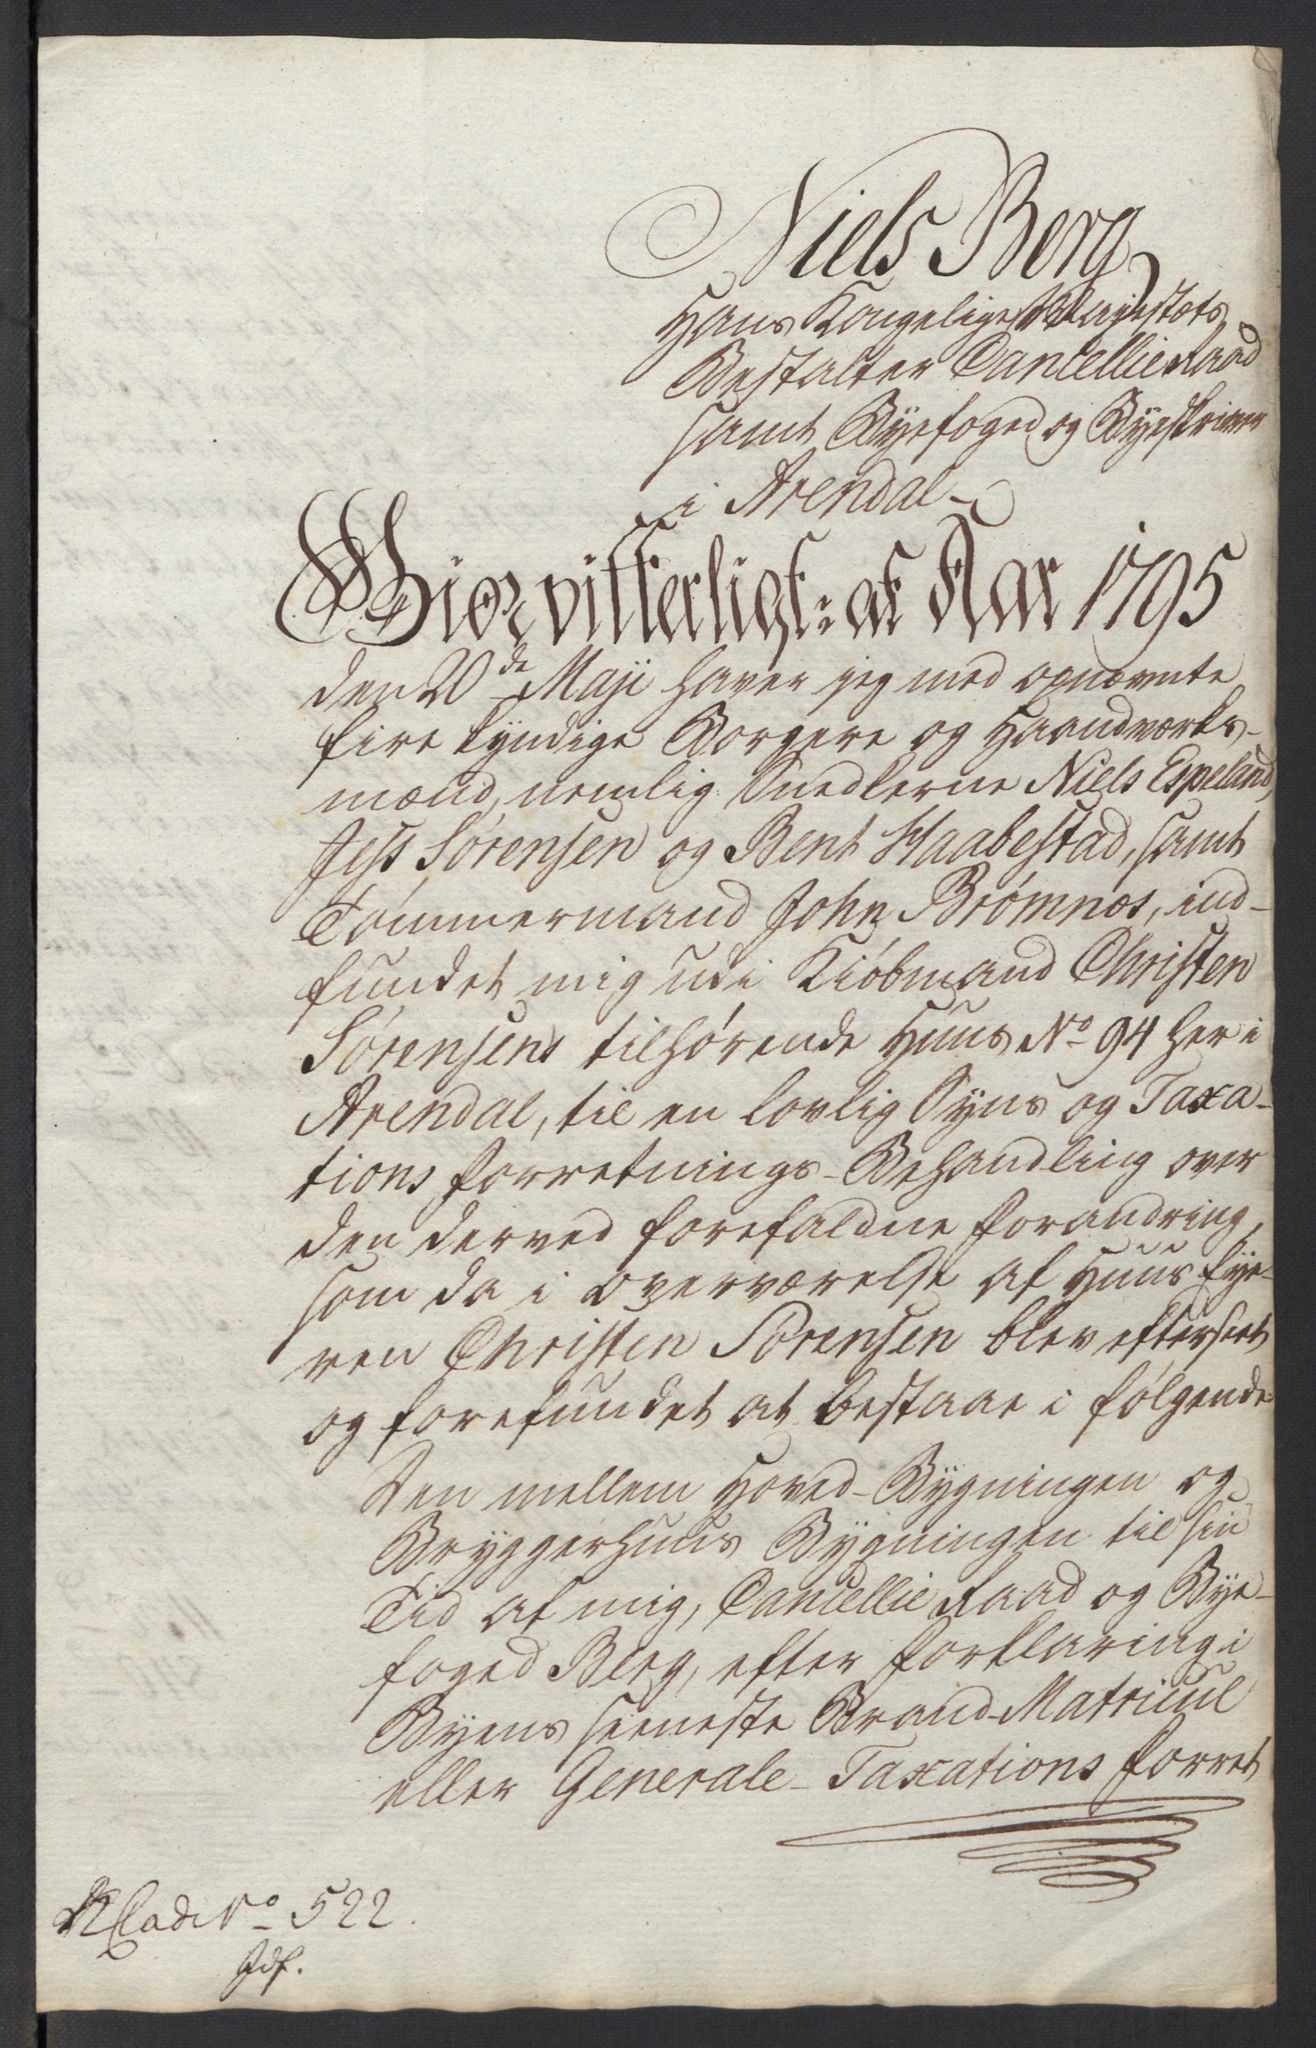 Niels Berg
Hans Kongelige Majestets
Bestalter Cancellieraad
samt Byefoged og Byeskriver
i Arendal
Giør vitterligt: at Aar 1795
den 20de Maji haver jeg med opnævnte
fire kyndige Borgere og Haandværks-
mænd, nemlig Snedkerne Niels Espeland,
Jess Sørensen og Bent Haabestad, samt
Tømmermand John Brømnæs, ind-
fundet mig udi Kiøbmand Christen
Sørensens tilhørende Huus No 94 her i
Arendal, til en lovlig Syns og Taxa-
tions forretnings-Behandling over
den derved forefaldne forandring,
som da i overværelse af Huus Eye-
ren Christen Sørensen blev efterseet
og forefundet at bestaae i følgende:
Den mellem Hoved-Bygningen og
Bryggerhuus Bygningen til sin
Tid af mig, Cancellie Raad og Bye-
foged Berg, efter forklaring i
Byens seeneste Brand-Matricul
eller Generale-Taxations forret
No 522.